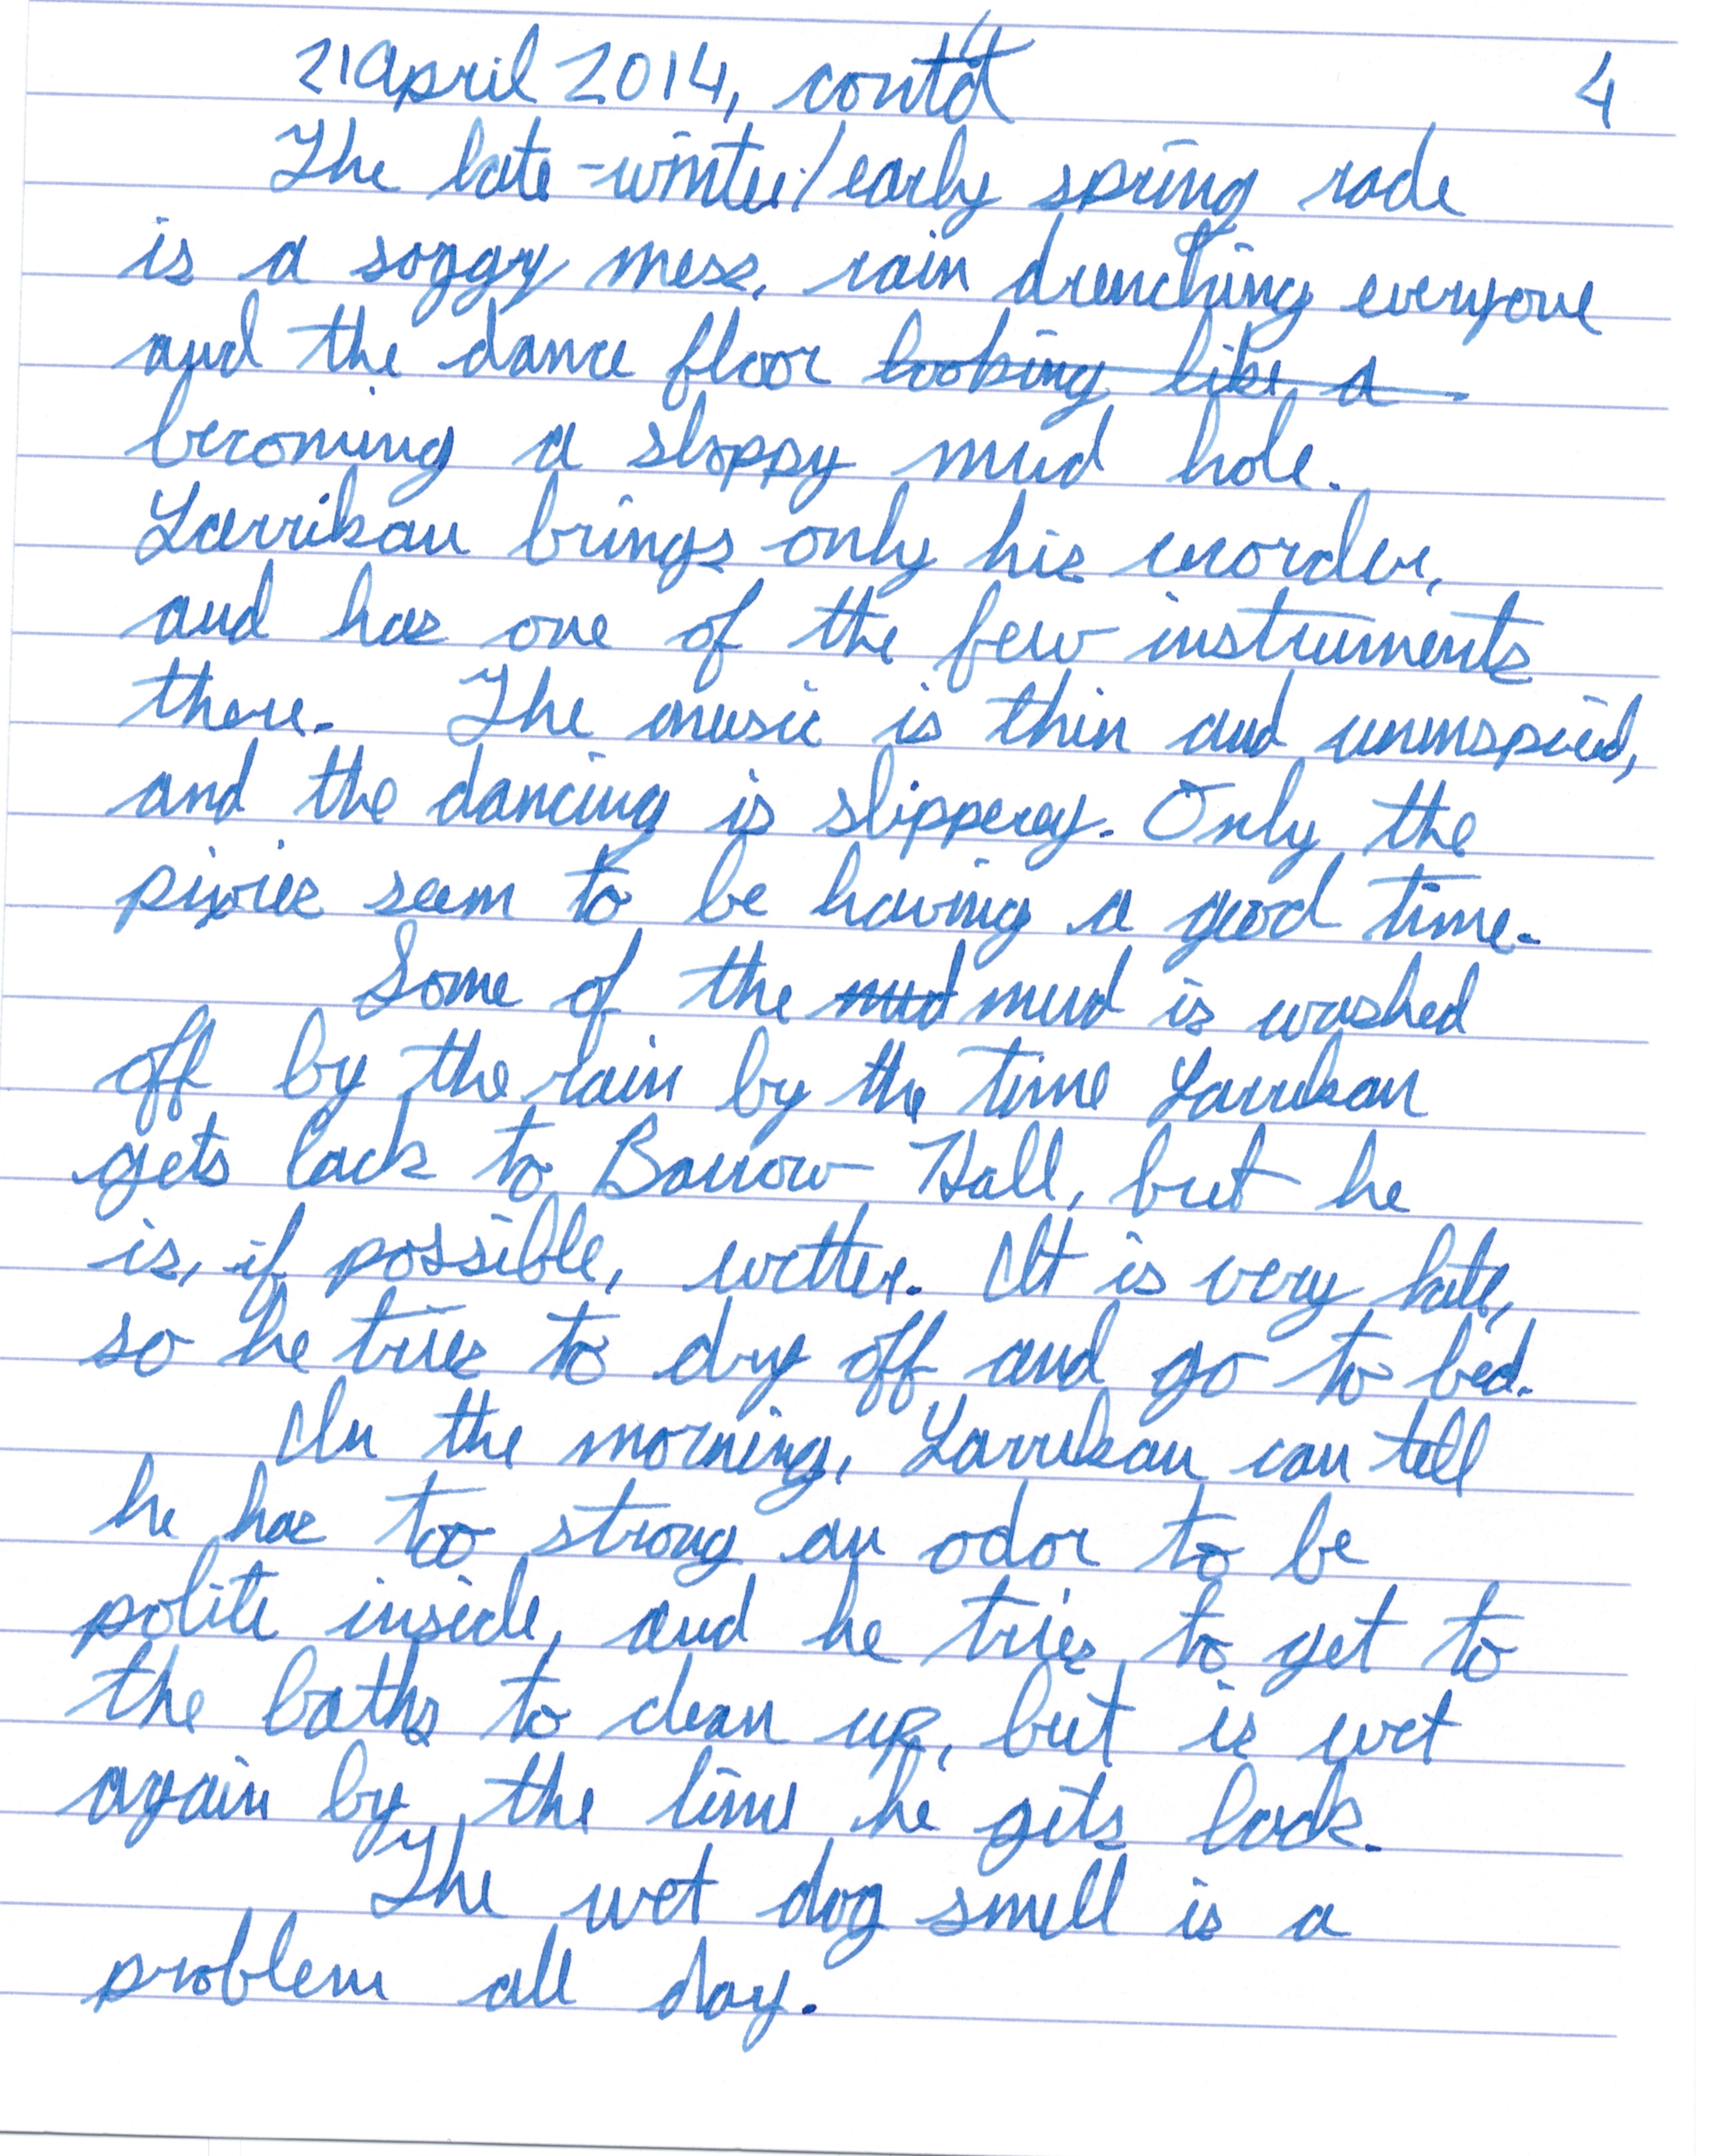 21 April 2014, cont'd 4
The late-winter/early spring rade
is a soggy mess, rain drenching everyone
and the dance floor looking like a
becoming a sloppy mud hole.
Larrikan brings only his recorder,
and has one of the few instruments
there. The music is thin and uninspired,
and the dancing is slipperey. Only the
pixies seem to be having a good time.
Some of the mud mud is washed
off by the rain by the time Larrikan
gets back to Barrow Hall, but he
is, if possible, wetter. It is very late,
so he tries to dry off and go to bed.
In the morning, Larrikan can tell
he has too strong an odor to be
polite inside, and he tries to get to
the baths to clean up, but is wet
again by the time he gets back.
The wet dog smell is a
problem all day.